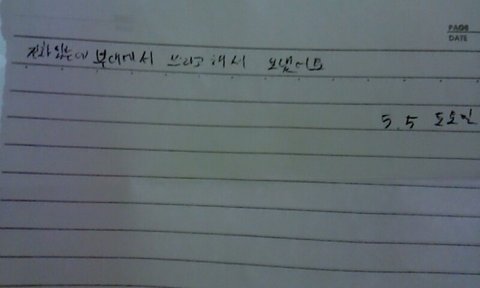 PAGE
DATE
전화 있는데 부대에서 쓰라고 해서 보냈어요
5.5 토요일